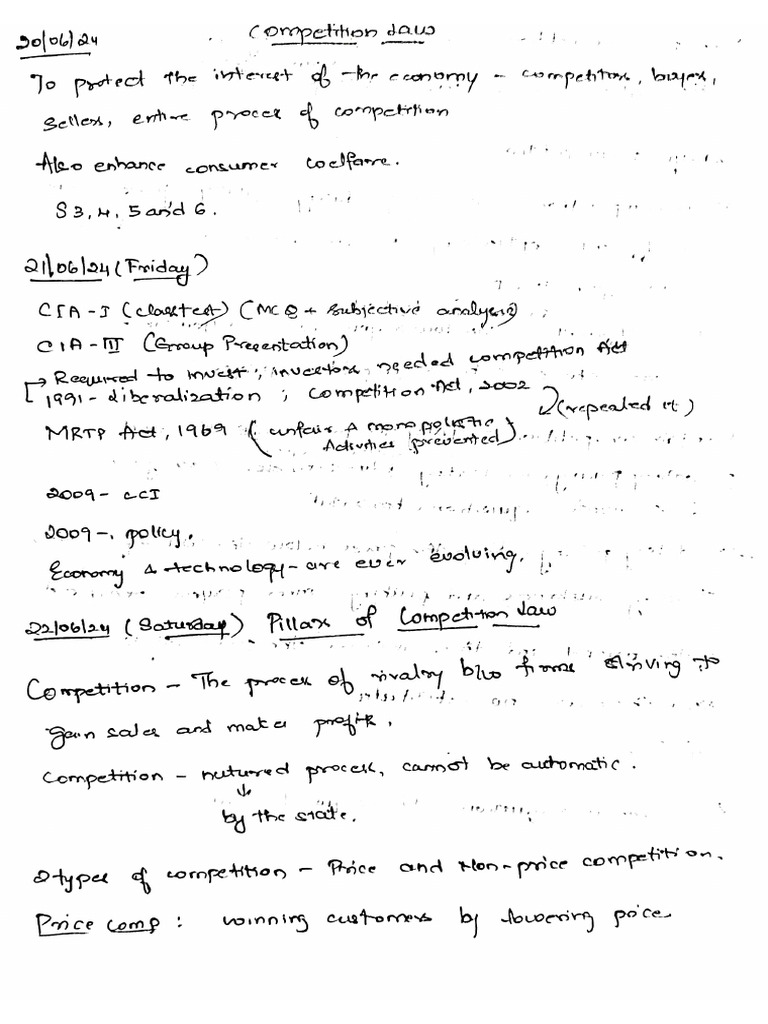 20/06/24 Competition Law
To protect the interest of the economy - competitors, buyers,
Sellers, entire process of competition
Also enhance consumer welfare.
S 3, 4, 5 and 6.
21/06/24 (Friday)
CIA - I (class test) (MCQ + subjective analysis)
CIA - III (Group Presentation)
→ Required to invest; investors needed competition Act
1991 - Liberalization ; Competition Act, 2002
MRTP Act, 1969 (unfair & monopolistic Activities prevented) (repealed it)
2009 - CCI
2009 - policy.
Economy & technology - are ever evolving.
22/06/24 (Saturday) Pillars of Competition Law
Competition - The process of rivalry b/w firms striving to
gain sales and make profits.
Competition - nutured process, cannot be automatic.
↓
by the state.
2 types of competition - Price and Non-price competition.
Price comp : winning customers by lowering prices